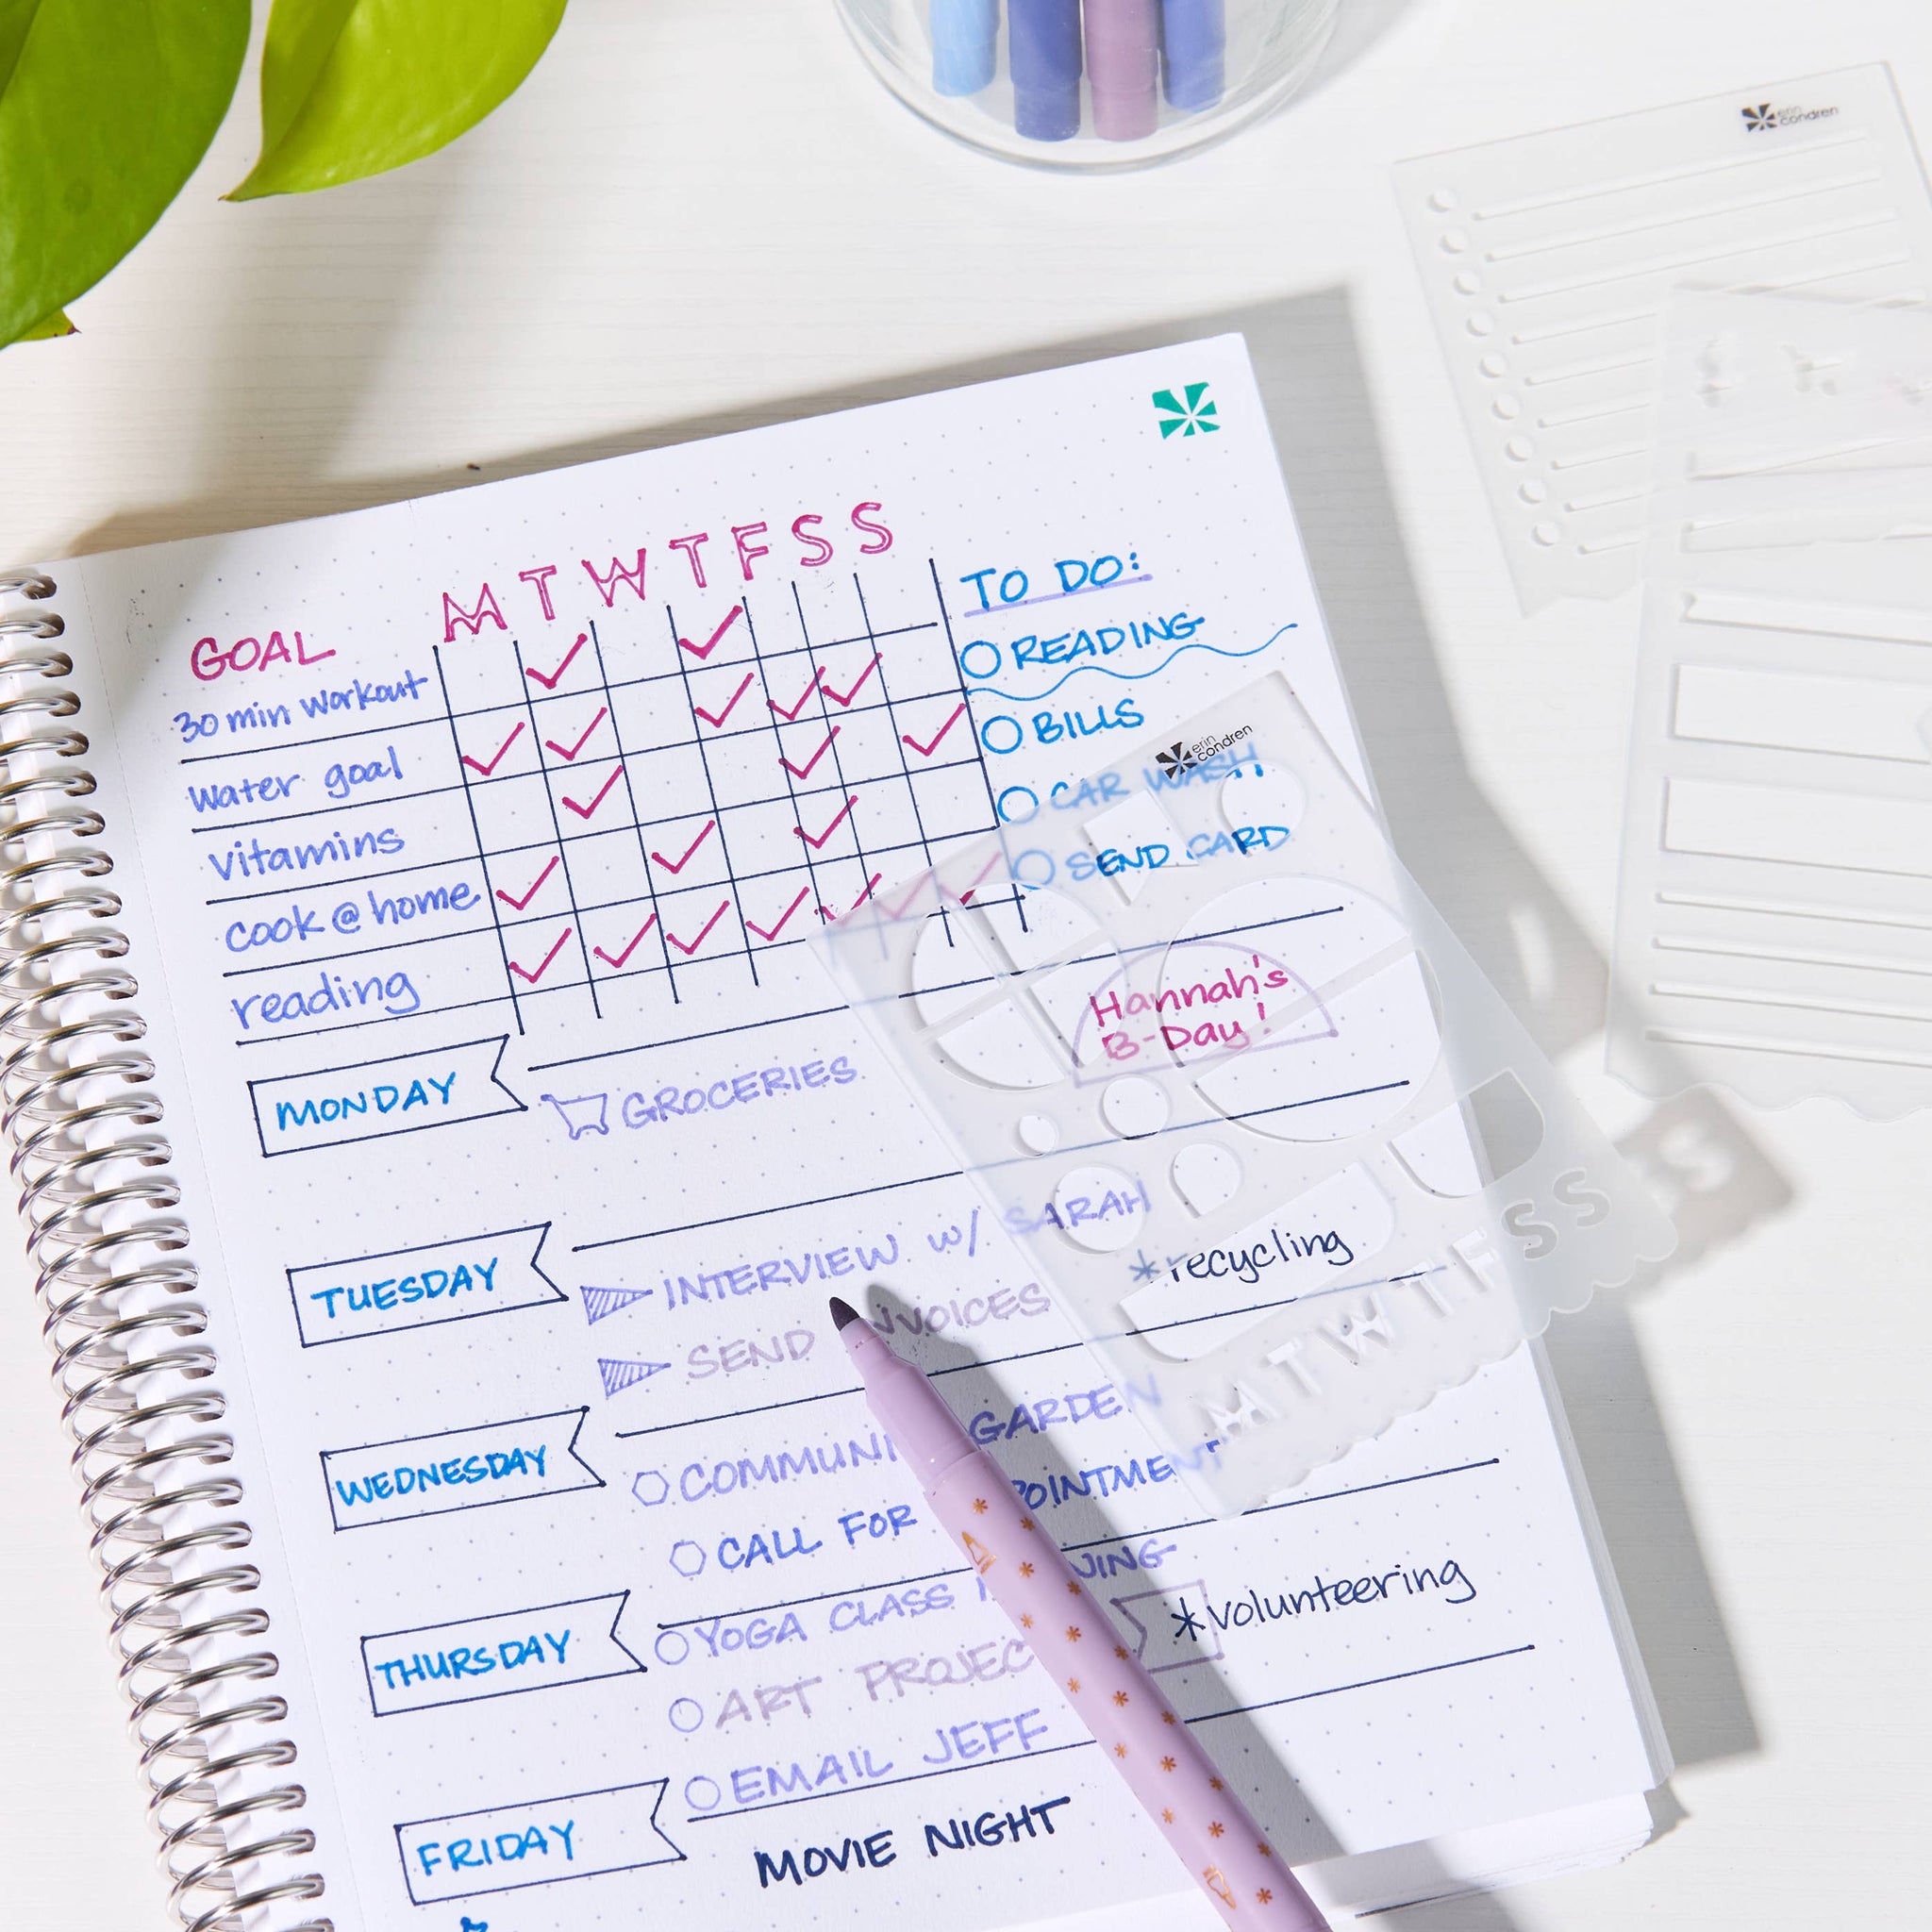 erin condren
M T W T F S S
GOAL
30 min workout
water goal
vitamins
cook @ home
reading
TO DO:
READING
BILLS
CAR WASH
SEND CARD
erin condren
MONDAY
GROCERIES
Hannah's
B-Day!
TUESDAY
INTERVIEW W/ SARAH
SEND NVOICES
*recycling
M T W T F S S
WEDNESDAY
COMMUNI GARDEN
CALL FOR POINTMENT
THURSDAY
YOGA CLASS NING
ART PROJEC
EMAIL JEFF
*volunteering
FRIDAY
MOVIE NIGHT